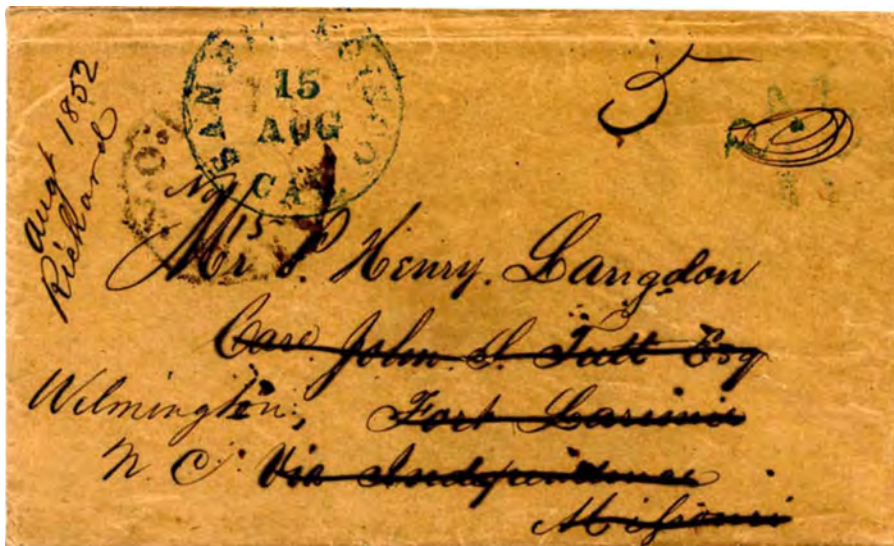 Augt 1852
Richard
SAN
15
AUG
CAL
5
Henry. Langdon
Care John S. Tutt Esq
Wilmington, Fort Laramie
N. C. Via Independence
Missouri